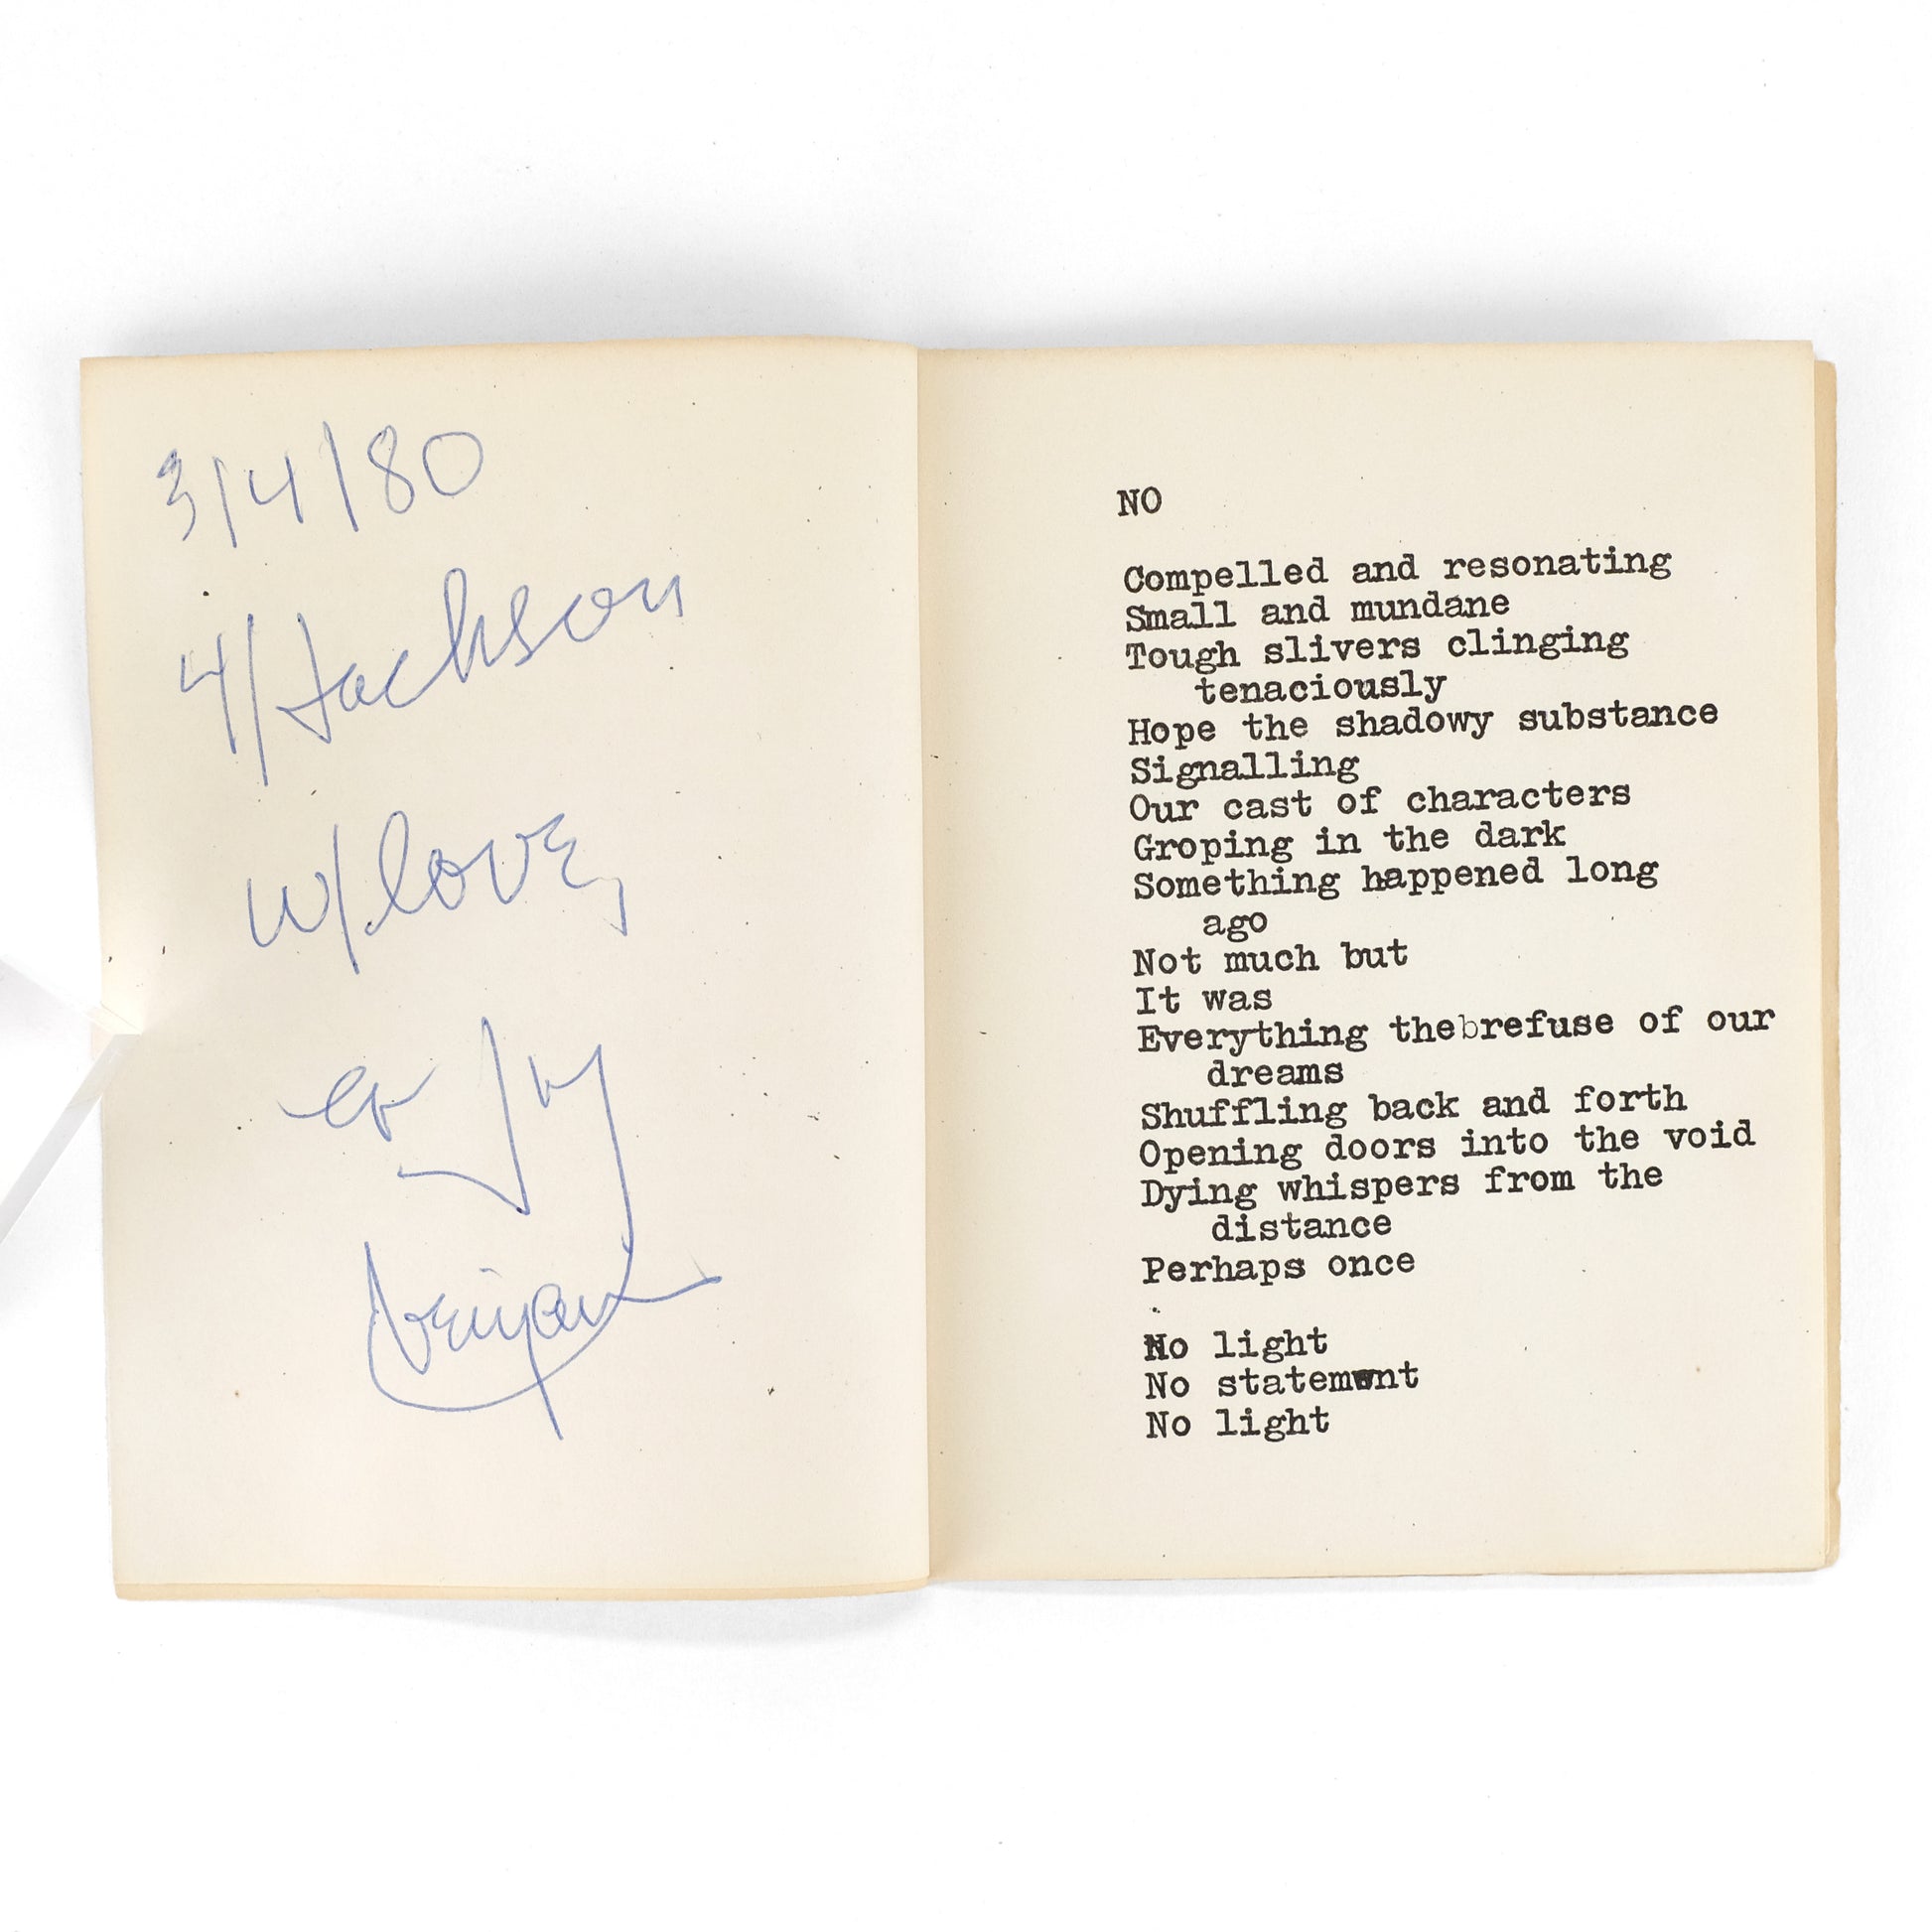 3/4/80
4/Jackson
w/love,
NO
Compelled and resonating
Small and mundane
Tough slivers clinging
tenaciously
Hope the shadowy substance
Signalling
Our cast of characters
Groping in the dark
Something happened long
ago
Not much but
It was
Everything thebrefuse of our
dreams
Shuffling back and forth
Opening doors into the void
Dying whispers from the
distance
Perhaps once
.
No light
No statemwnt
No light